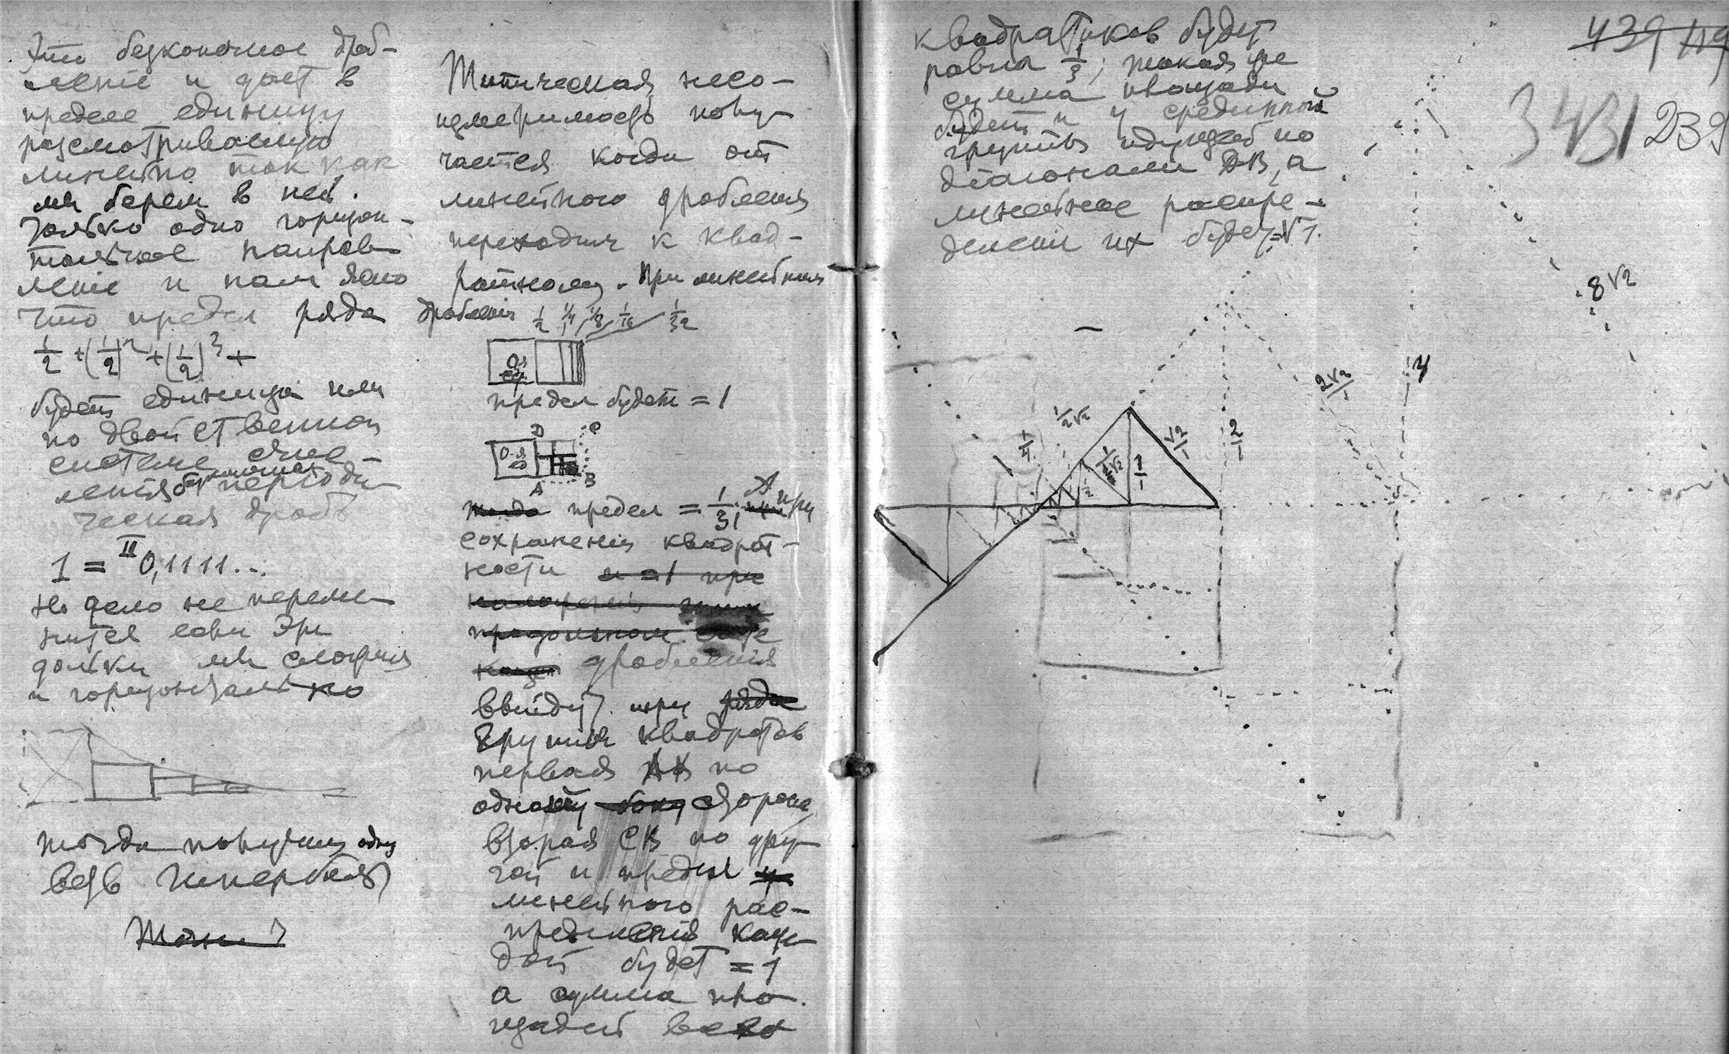 Это безконечное дроб-
ление и дает в
пределе единицу
разсмотриваемую
линейно так как
мы берем в ней
только одно горизон-
тальное направ-
ление и нам ясно
что предел ряда
1/2 + (1/2)² + (1/2)³ +
будет единица или
по двойственной
системе счис-
ления безконечная периоди-
ческая дробь
1 = II 0,1111...
Но дело не переме-
нится если эти
дольки мы сложим
и горизонтально
тогда получим одну
ветвь гиперболы
Типическая несо-
измеримость полу-
чается когда от
линейного дробления
переходим к квад-
ратному. При линейном
дроблении 1/2 1/4, 1/8, 1/16 1/32
предел будет = 1
D C
A B
предел = 1/3; при
сохранении квадрат-
ности
дробления
выйдут три
группы квадратов
первая AB по
одной стороне
вторая CB по дру-
гой и предел
линейного рас-
пределения каж-
дой будет = 1
а сумма пло-
щадей всех
квадратиков будет
равна 1/3; такая же
сумма площади
будет и у срединной
группы идущей по
диагонали DB, а
линейное распре-
деление их будет =√
439 119
3431 239
8√2
4
2√2/1
1/2√2
√2/1
2/1
1/4
1/1
1/2